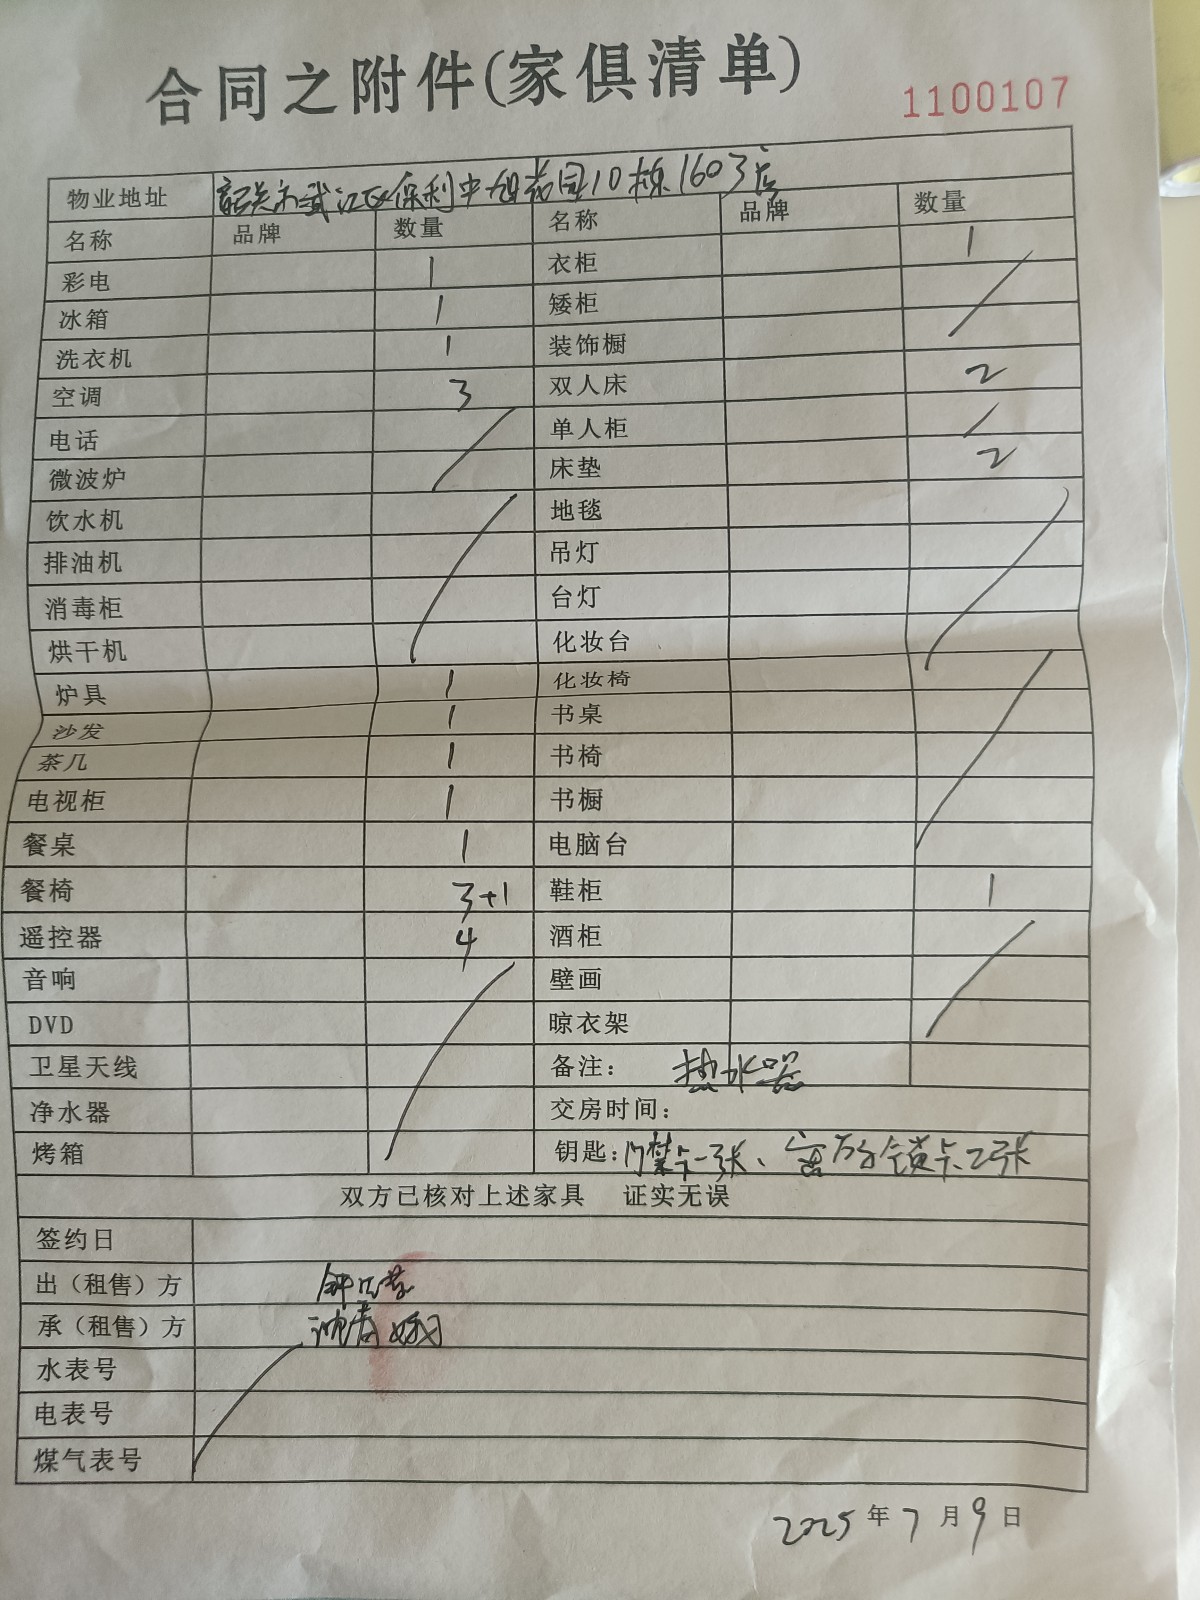 合同之附件(家俱清单)
1100107
物业地址 韶关市武江区保利中旭花园10栋1603房
名称 品牌 数量 名称 品牌 数量
彩电 1 衣柜 1
冰箱 1 矮柜
洗衣机 1 装饰橱
空调 3 双人床 2
电话 单人柜
微波炉 床垫 2
饮水机 地毯
排油机 吊灯
消毒柜 台灯
烘干机 化妆台
炉具 1 化妆椅
沙发 1 书桌
茶几 1 书椅
电视柜 1 书橱
餐桌 1 电脑台
餐椅 3+1 鞋柜 1
遥控器 4 酒柜
音响 壁画
DVD 晾衣架
卫星天线 备注: 热水器
净水器 交房时间:
烤箱 钥匙: 门禁卡一张、密码锁卡2张
双方已核对上述家具 证实无误
签约日
出(租售)方
承(租售)方
水表号
电表号
煤气表号
2025年7月9日